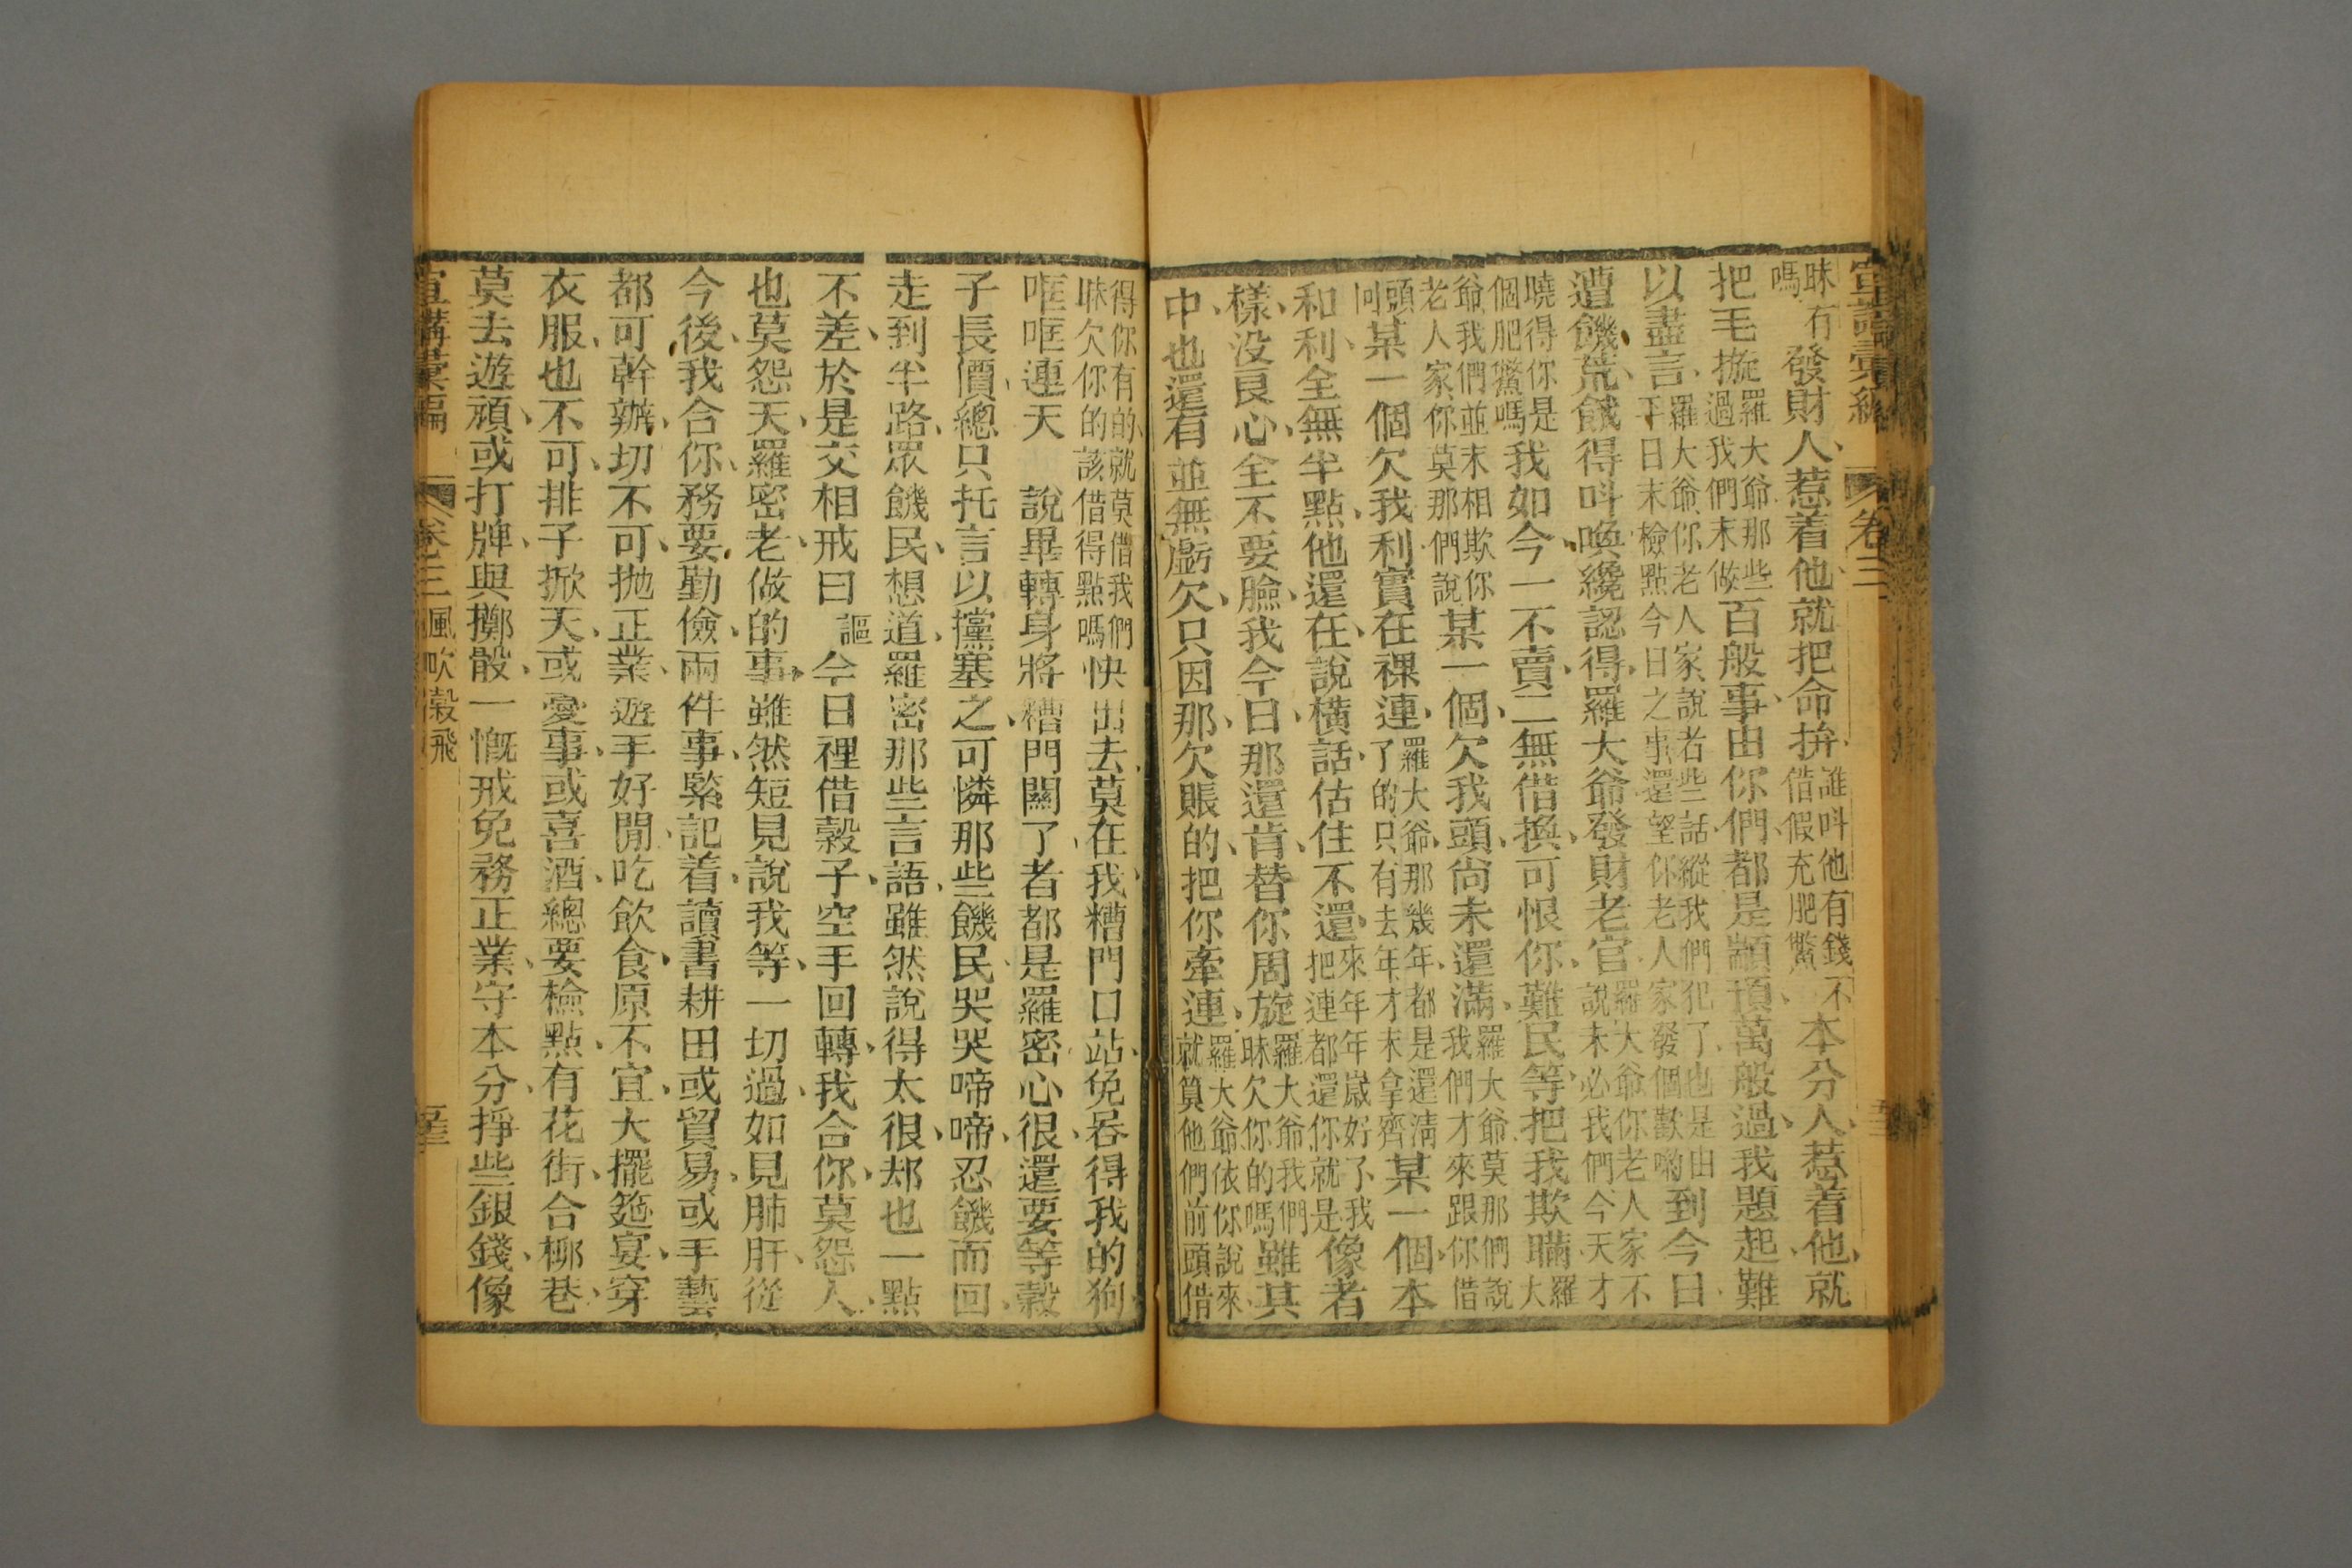 宣講彙編 卷三
昧有嗎 發財人惹着他就把命拚 誰叫他有錢不借假充肥鱉 本分人惹着他就
把毛㨨 羅大爺那些過我們末做 百般事由你們都是顓頊萬般過我題起難
以盡言 羅大爺你老人家說者些話縱我們犯了也是由平日末檢點今日之事還望你老人家發個歎喲 到今日
遭饑荒餓得呌喚纔認得羅大爺發財老官 羅大爺你老人家不說末必我們今天才
曉得你是個肥鱉嗎 我如今一不賣二無借換可恨你難民等把我欺瞞 羅大
爺我們並末相欺你老人家你莫那們說 某一個欠我頭尚未還滿 羅大爺莫那們說我們才來跟你借
頭回 某一個欠我利實在裸連 羅大爺那幾年都是還淸了的只有去年才末拿齊 某一個本
和利全無半點他還在說橫話估住不還 來年年歲好了我把連都還你就是 像者
樣没良心全不要臉我今日那還肯替你周旋 羅大爺我們昧欠你的嗎 雖其
中也還有並無虧欠只因那欠賬的把你牽連 羅大爺依你說來就算他們前頭借
得你有的就莫借我們昧欠你的該借得點嗎 快出去莫在我糟門口站免唇得我的狗
哐哐連天 說畢轉身將糟門關了者都是羅密心很還要等穀
子長價總只托言以攩塞之可憐那些饑民哭哭啼啼忍饑而回
走到半路眾饑民想道羅密那些言語雖然說得太很却也一點
不差於是交相戒曰 謳 今日裡借穀子空手回轉我合你莫怨人
也莫怨天羅密老做的事雖然短見說我等一切過如見肺肝從
今後我合你務要勤儉兩件事緊記着讀書耕田或貿易或手藝
都可幹辦切不可抛正業遊手好閒吃飲食原不宜大擺筵宴穿
衣服也不可排子掀天或愛事或喜酒總要檢點有花街合柳巷
莫去遊頑或打牌與擲骰一慨戒免務正業守本分掙些銀錢像
宣講彙編 卷三 風吹穀飛 五三